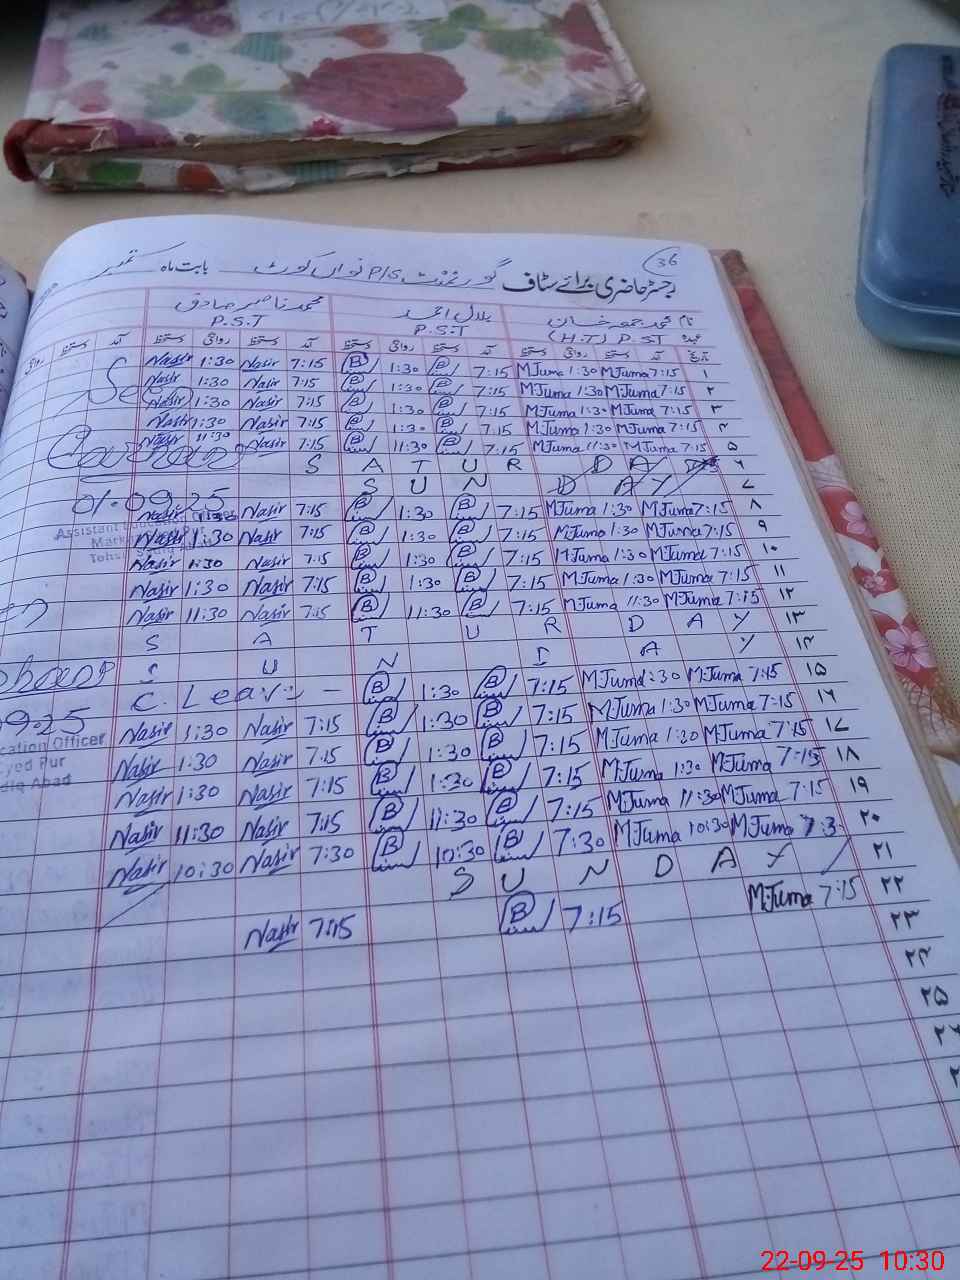 36
رجسٹر حاضری برائے سٹاف گورنمنٹ P/S نواں کوٹ بابت ماہ ستمبر
نام محمد جمعہ خان بلال احمد محمد ناصر صادق
عہدہ (H.T) P.ST P.S.T P.S.T
تاریخ آمد دستخط روانگی دستخط آمد دستخط روانگی دستخط آمد دستخط روانگی دستخط آمد دستخط روانگی
Nasir 1:30 Nasir 7:15 B 1:30 B 7:15 MJuma 1:30 MJuma 7:15 ۱
Nasir 1:30 Nasir 7:15 B 1:30 B 7:15 MJuma 1:30 MJuma 7:15 ۲
Nasir 1:30 Nasir 7:15 B 1:30 B 7:15 MJuma 1:30 MJuma 7:15 ۳
Nasir 1:30 Nasir 7:15 B 1:30 B 7:15 MJuma 1:30 MJuma 7:15 ۴
Nasir 11:30 Nasir 7:15 B 11:30 B 7:15 MJuma 11:30 MJuma 7:15 ۵
S A T U R D A Y ۶
S U N D A Y ۷
01-09-25
Nasir 1:30 Nasir 7:15 B 1:30 B 7:15 MJuma 1:30 MJuma 7:15 ۸
Assistant Education Officer
Nasir 1:30 Nasir 7:15 B 1:30 B 7:15 MJuma 1:30 MJuma 7:15 ۹
Nasir 1:30 Nasir 7:15 B 1:30 B 7:15 MJuma 1:30 MJuma 7:15 ۱۰
Nasir 1:30 Nasir 7:15 B 1:30 B 7:15 MJuma 1:30 MJuma 7:15 ۱۱
Nasir 11:30 Nasir 7:15 B 11:30 B 7:15 MJuma 11:30 MJuma 7:15 ۱۲
S A T U R D A Y ۱۳
S U N D A Y ۱۴
C. Leave - B 1:30 B 7:15 MJuma 1:30 MJuma 7:15 ۱۵
Nasir 1:30 Nasir 7:15 B 1:30 B 7:15 MJuma 1:30 MJuma 7:15 ۱۶
9-25
cation Officer
yed Pur
diq Abad
Nasir 1:30 Nasir 7:15 B 1:30 B 7:15 MJuma 1:30 MJuma 7:15 ۱۷
Nasir 1:30 Nasir 7:15 B 1:30 B 7:15 MJuma 1:30 MJuma 7:15 ۱۸
Nasir 11:30 Nasir 7:15 B 11:30 B 7:15 MJuma 11:30 MJuma 7:15 ۱۹
Nasir 10:30 Nasir 7:30 B 10:30 B 7:30 MJuma 10:30 MJuma 7:3 ۲۰
S U N D A Y ۲۱
Nasir 7:15 B 7:15 MJuma 7:15 ۲۲
۲۳
۲۴
۲۵
۲۶
22-09-25 10:30